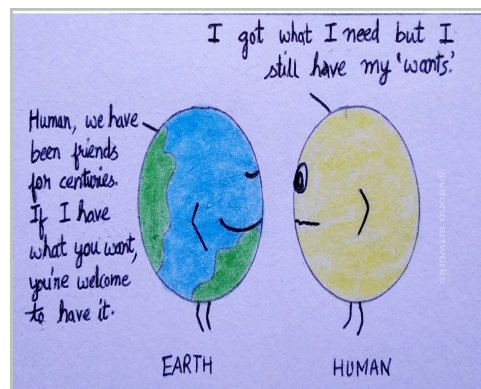 I got what I need but I
still have my 'wants'.
Human, we have
been friends
for centuries.
If I have
what you want,
you're welcome
to have it.
EARTH
HUMAN